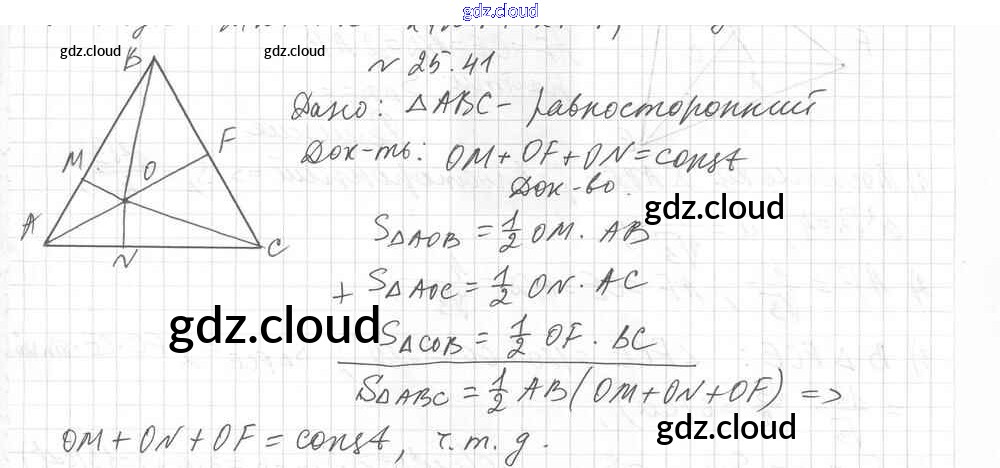 gdz.cloud
gdz.cloud gdz.cloud
N 25.41
Дано: △ABC - равносторонний
Док-ть: OM+OF+ON=const
Док-во.
gdz.cloud
S△AOB = 1/2 OM · AB
+ S△AOC = 1/2 ON · AC
gdz.cloud
S△COB = 1/2 OF · BC
S△ABC = 1/2 AB(OM+ON+OF) =>
gdz.cloud
OM+ON+OF=const, ч.т.д.
B
M
O
F
A
N
C